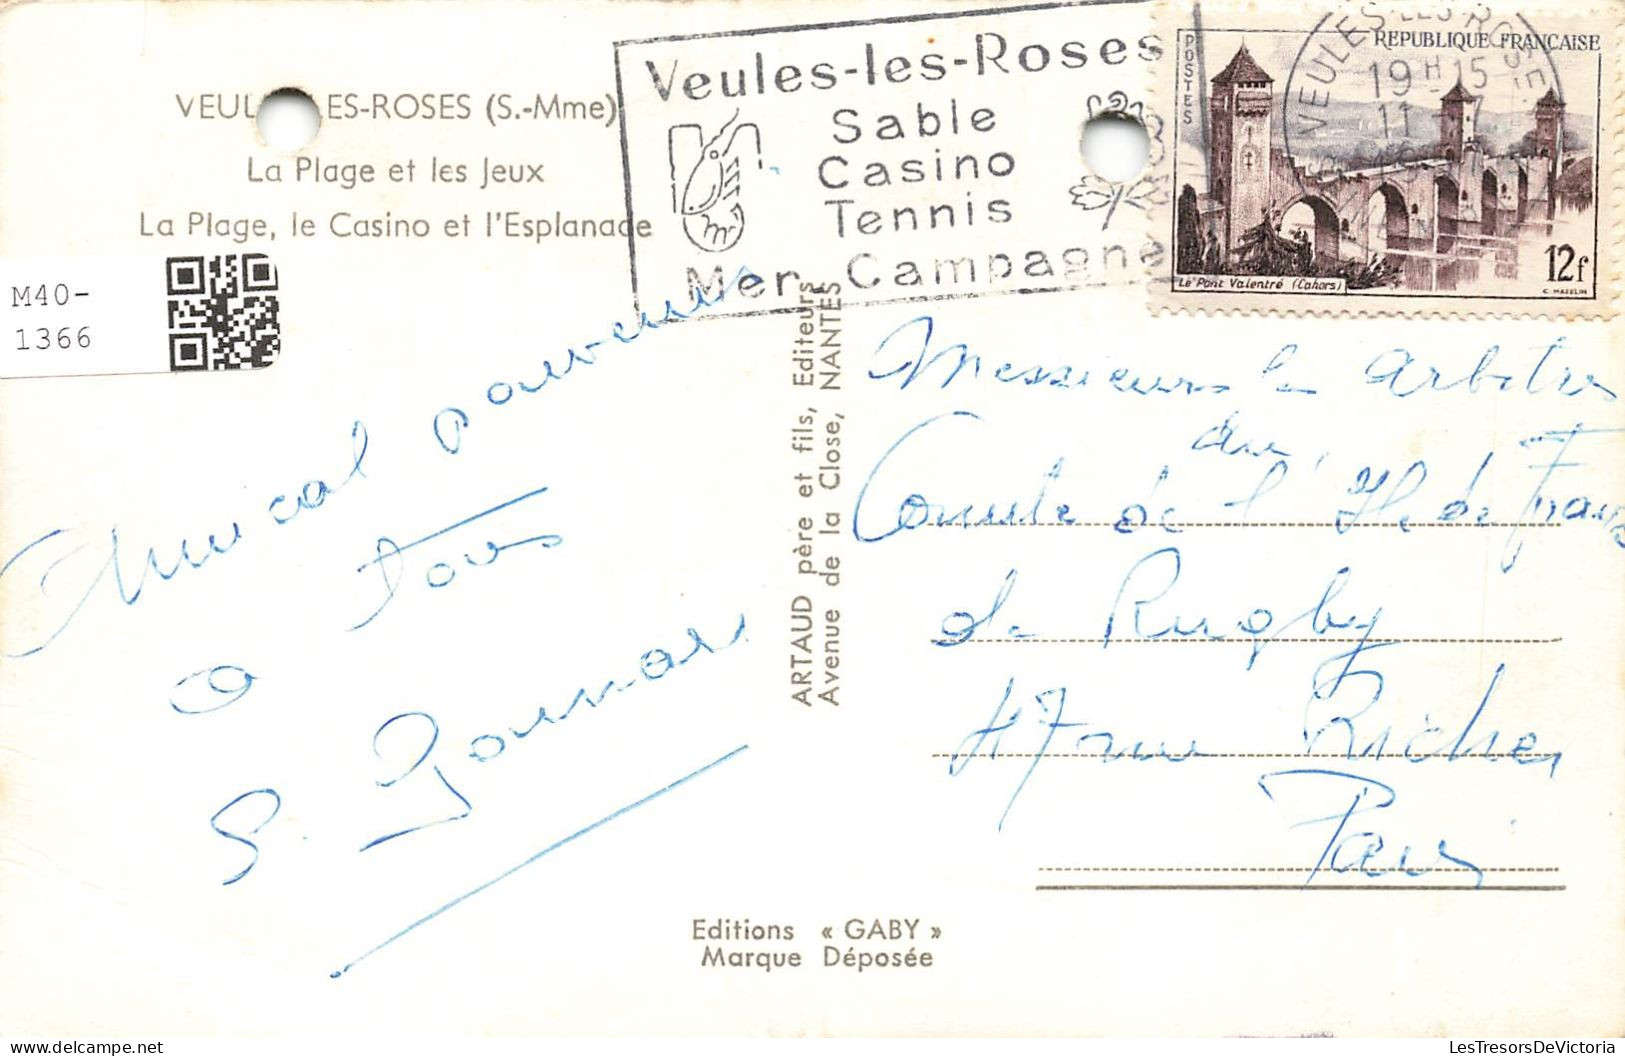 VEUL ES-ROSES (S.-Mme)
La Plage et les Jeux
La Plage, le Casino et l'Esplanade
M40-
1366
Veules-les-Roses
Sable
Casino
Tennis
Mer Campagne
VEULES-LES-ROSES
19 H 15
11 - 7
POSTES
REPUBLIQUE FRANÇAISE
12f
Le Pont Valentré (Cahors)
C. MAZELIN
Amical souvenir
à Tous
ARTAUD père et fils, Editeurs
Avenue de la Close, NANTES
Messieurs les Arbitres
du
Comité de l'Ile de France
de Rugby
47 rue Richer
Paris
Editions « GABY »
Marque Déposée
LesTresorsDeVictoria.com